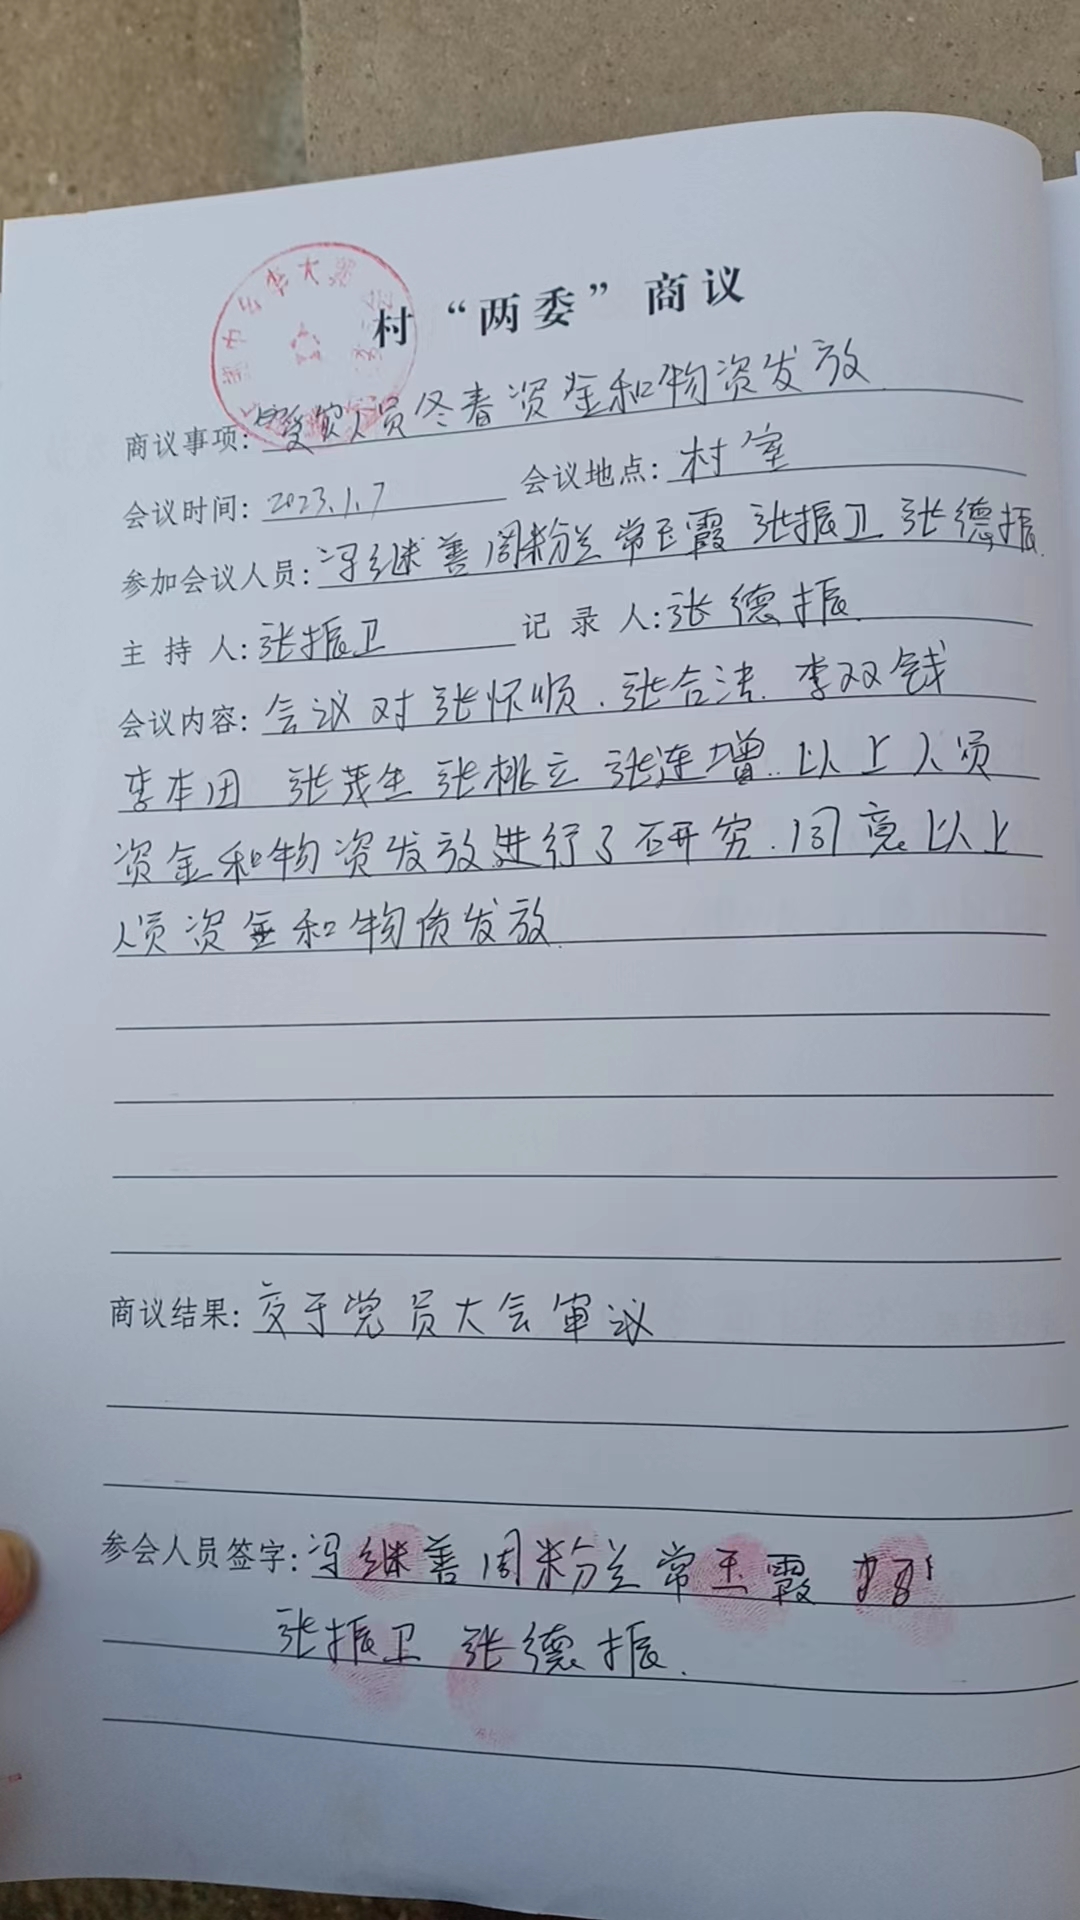 村“两委”商议
商议事项: 受灾人员冬春资金和物资发放
会议时间: 2023.1.7 会议地点: 村室
参加会议人员: 冯继善 周粉兰 常玉霞 张振卫 张德振.
主 持 人: 张振卫 记 录 人: 张德振.
会议内容: 会议对张怀顺.张合法.李双钱
李本田 张茂生 张桃立 张连增.以上人员
资金和物资发放进行了研究.同意以上
人员资金和物质发放.
商议结果: 交于党员大会审议
参会人员签字: 冯继善 周粉兰 常玉霞
张振卫 张德振.